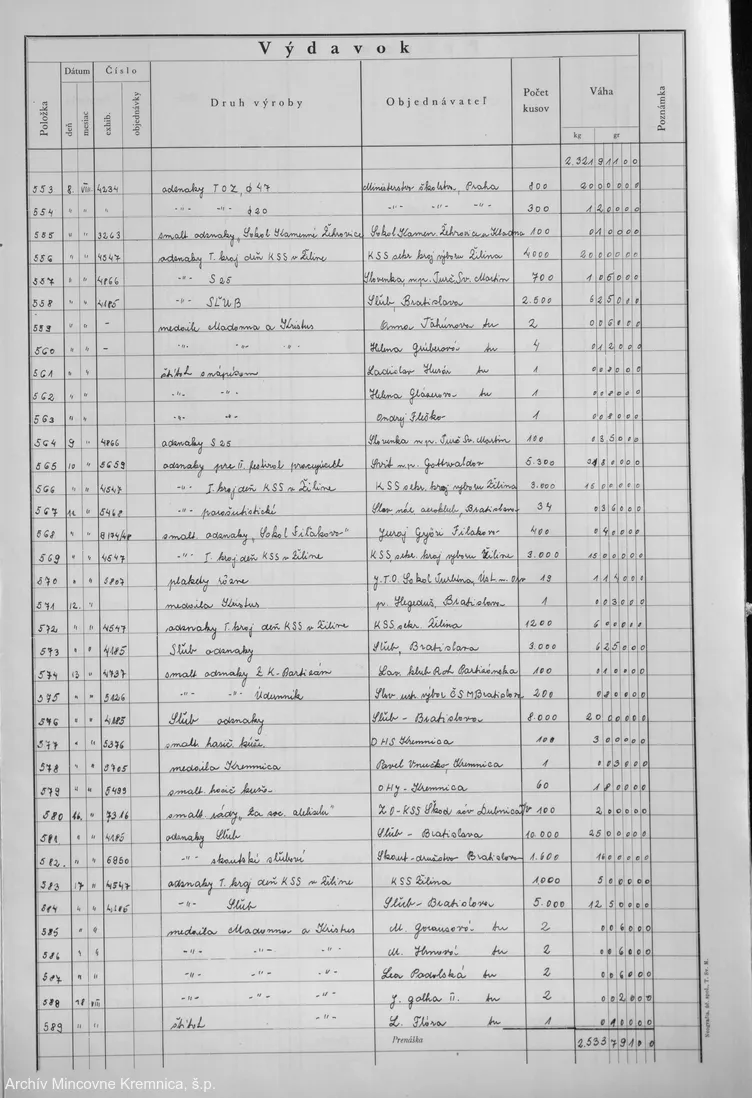 Výdavok
Položka Dátum Číslo Druh výroby Objednávateľ Počet kusov Váha Poznámka
deň mesiac exhib. objednávky kg gr
2.321 9 1 1 0 0
553 8. VIII 4234 odznaky TOZ, ø 47 Ministerstvo školstva, Praha 800 20 0 0 0 0 0
554 " " " -"- -"- ø 20 -"- -"- -"- 300 1 2 0 0 0 0
555 " " 3263 smalt odznaky "Sokol Kamenné Žehrovice Sokol Kamen. Žehrovice u Kladna 100 0 1 0 0 0 0
556 " " 4547 odznaky I. kraj deň KSS v Žiline KSS sekr. kraj výboru Žilina 4000 20 0 0 0 0 0
557 " " 4866 -"- S 25 Slovenka n.p. Turč. Sv. Martin 700 1 0 5 0 0 0
558 " " 4185 -"- SĽUB Sľub, Bratislava 2.500 6 2 5 0 0 0
559 " " - medaile Madonna a Kristus Anna tu 2
560 " " - " " -"- Helena tu 4 0 1 2 0 0 0
561 " " štítok s nápisom Ladislav Husár tu 1 0 0 8 0 0 0
562 " " -"- -"- Helena tu 1 0 0 8 0 0 0
563 " " -"- -"- Ondrej 1 0 0 8 0 0 0
564 9 " 4866 odznaky S 25 Slovenka n.p. Turč. Sv. Martin 100 0 3 5 0 0 0
565 10 " 5659 odznaky pre II. festival pracujúcich Svit n.p. Gottwaldov 5.300
566 " " 4547 -"- I. kraj deň KSS v Žiline KSS sekr. kraj výboru Žilina 3.000 15 0 0 0 0 0
567 11 " 5468 -"- parašutistické Slov. nár. aeroklub, Bratislava 34 0 3 6 0 0 0
568 " " 8194/48 smalt. odznaky "Sokol Fiľakovo" Juraj Györi Fiľakovo 400 0 4 0 0 0 0
569 " " 4547 -"- I. kraj deň KSS v Žiline KSS sekr. kraj výboru Žilina 3.000 15 0 0 0 0 0
570 " " 5807 plakety rôzne J.T.O. Sokol 19 1 1 4 0 0 0
571 12. " medaila Kristus p. Hegeduš, Bratislava 1 0 0 3 0 0 0
572 " " 4547 odznaky I. kraj deň KSS v Žiline KSS sekr. Žilina 1200 6 0 0 0 0 0
573 " " 4185 Sľub odznaky Sľub, Bratislava 3.000 6 2 5 0 0 0
574 13 " 4737 smalt odznaky Z K - Partizán klub Partizánske 100 0 1 0 0 0 0
575 " " 5126 -"- -"- Údernník Slov. ústr. výbor ČSM Bratislava 200 0 8 0 0 0 0
576 " " 4185 Sľub odznaky Sľub - Bratislava 8.000 20 0 0 0 0 0
577 " " 5376 smalt. hasič. DHS Kremnica 100 3 0 0 0 0 0
578 " " 5705 medaila Kremnica Pavel Vnučko, Kremnica 1 0 0 3 0 0 0
579 " " 5499 smalt. hasič DHJ - Kremnica 60 1 8 0 0 0 0
580 16. " 7316 smalt. rády "Za soc. Z.O-KSS Škod. záv Dubnica n/V 100 2 0 0 0 0 0
581 " " 4185 odznaky Sľub Sľub - Bratislava 10.000 25 0 0 0 0 0
582. " " 6860 -"- skautské sľubové Skaut-družstvo Bratislava 1.600 16 0 0 0 0 0
583 17 " 4547 odznaky I. kraj deň KSS v Žiline KSS Žilina 1000 5 0 0 0 0 0
584 " " 4185 -"- Sľub Sľub - Bratislava 5.000 12 5 0 0 0 0
585 " " medaila Madonna a Kristus M. tu 2 0 0 6 0 0 0
586 " " -"- -"- -"- M. tu 2 0 0 6 0 0 0
587 " " -"- -"- -"- Lea Padolská tu 2 0 0 6 0 0 0
588 18 VIII -"- -"- -"- J. tu 2 0 0 2 0 0 0
589 " " štítok L. Flóra tu 1 0 1 0 0 0 0
Prenáška 2.533 7 9 1 0 0
Archív Mincovne Kremnica, š.p.